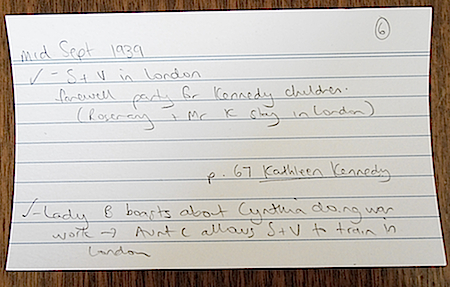 6
Mid Sept 1939
✓ - S + V in London
farewell party for Kennedy children.
(Rosemary + Mr K stay in London)
p. 67 Kathleen Kennedy
✓ - Lady B boasts about Cynthia doing war
work → Aunt C allows S + V to train in
London